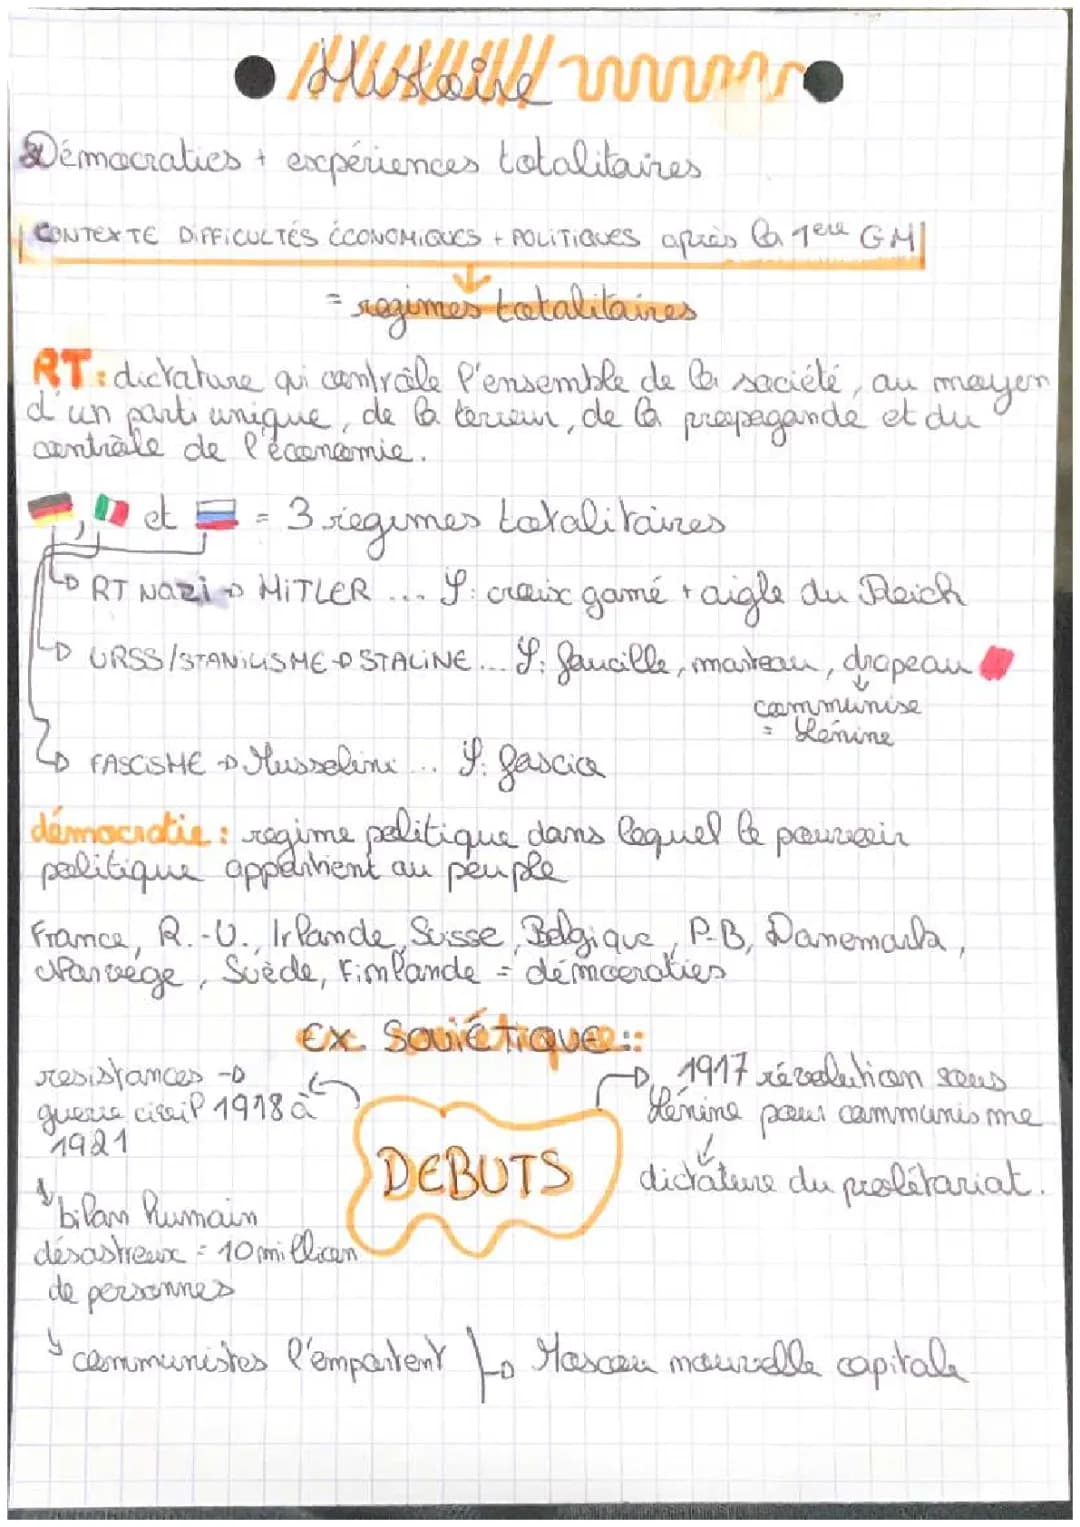 Histoire
Démocraties + expériences totalitaires
CONTEXTE DIFFICULTÉS ÉCONOMIQUES + POLITIQUES après la 1ère GM
= regimes totalitaires
RT : dictature qui contrôle l'ensemble de la société, au moyen
d'un parti unique, de la terreur, de la propagande et du
contrôle de l'économie.
, et = 3 regimes totalitaires
RT Nazi → HITLER ... S: croix gamé + aigle du Reich
URSS/STANILISME → STALINE... S: faucille, marteau, drapeau
communise
= Lénine
FASCISME → Mussolini ... S: fascio
démocratie : regime politique dans lequel le pouvoir
politique appartient au peuple
France, R.-U., Irlande, Suisse, Belgique, P-B, Danemark,
Norvége, Suède, Finlande = démocraties
Ex. SOVIÉTIQUE ::
resistances →
guerre civil 1918 à
1921
1917 révolution sous
Lénine pour communisme
DEBUTS
dictature du prolétariat.
bilan humain
désastreux = 10 million
de personnes
communistes l'emportent → Moscou nouvelle capitale